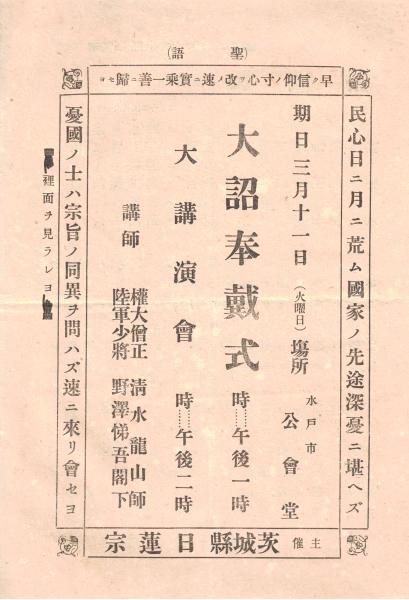 (聖語)
早ク信仰ノ寸心ヲ改メ速ニ實乘ノ一善ニ歸セヨ
民心日ニ月ニ荒ム國家ノ先途深憂ニ堪ヘズ
期日三月十一日(火曜日)塲所 水戸市 公會堂
大詔奉戴式 時……午後一時
大講演會 時……午後二時
講師 權大僧正 清水龍山師
陸軍少將 野澤悌吾閣下
憂國ノ士ハ宗旨ノ同異ヲ問ハズ速ニ來リ會セヨ
裡面ヲ見ラレヨ
主催 茨城縣日蓮宗